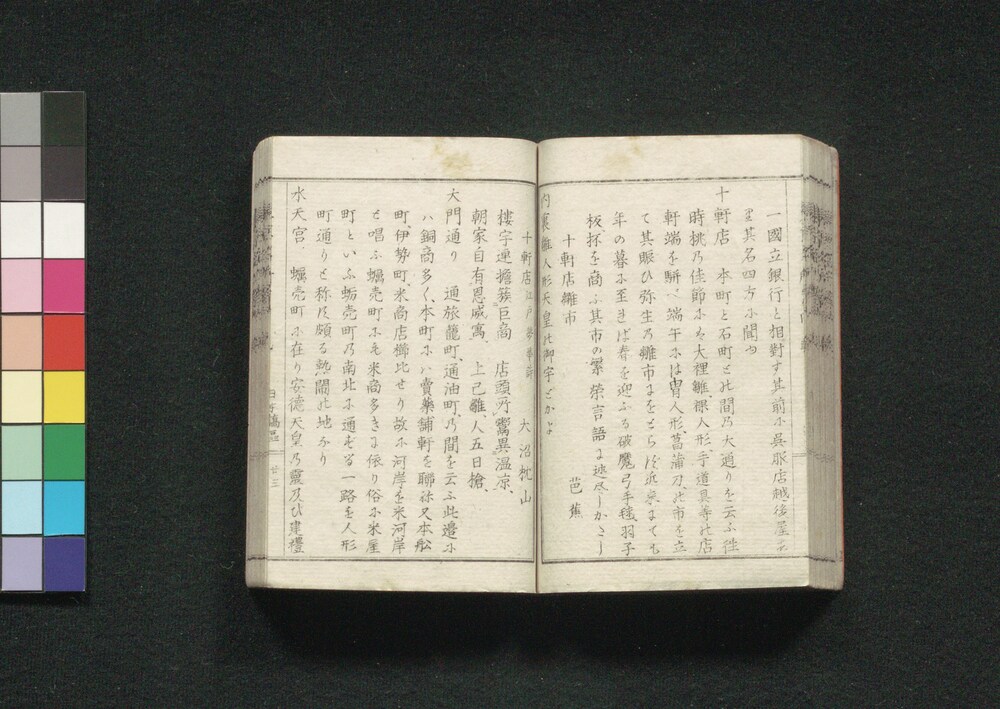 一國立銀行と相對す其前に呉服店越後屋あ
里其名四方に聞ゆ
十軒店 本町と石町との間の大通りを云ふ往
時桃の佳節には大裡雛裸人形手道具等の店
軒端を駢べ端午には冑人形菖蒲刀の市を立
て其賑ひ弥生の雛市にをとらず近来にても
年の暮に至れば春を迎ふる破魔弓手毬羽子
板抔を商ふ其市の繁榮言語に述尽しがたし
十軒店雛市 芭蕉
内裏雛人形天皇の御宇とかよ
十軒店 大沼枕山
樓宇連擔簇巨商 店頭所鬻異温凉、
朝家自有恩威寓、上已雛人五日槍、
大門通り 通旅籠町、通油町、の間を云ふ此邊に
ハ銅商多く、本町にハ賣藥舗軒を聯ね又本舩
町、伊勢町、米商店櫛比せり故に河岸を米河岸
と唱ふ蠣売町にも米商多きに依り俗に米屋
町といふ蛎売町の南北に通ずる一路を人形
町通りと称す頗る熱閙の地なり
水天宮、蠣売町に在り安德天皇の靈及び建禮
廿三